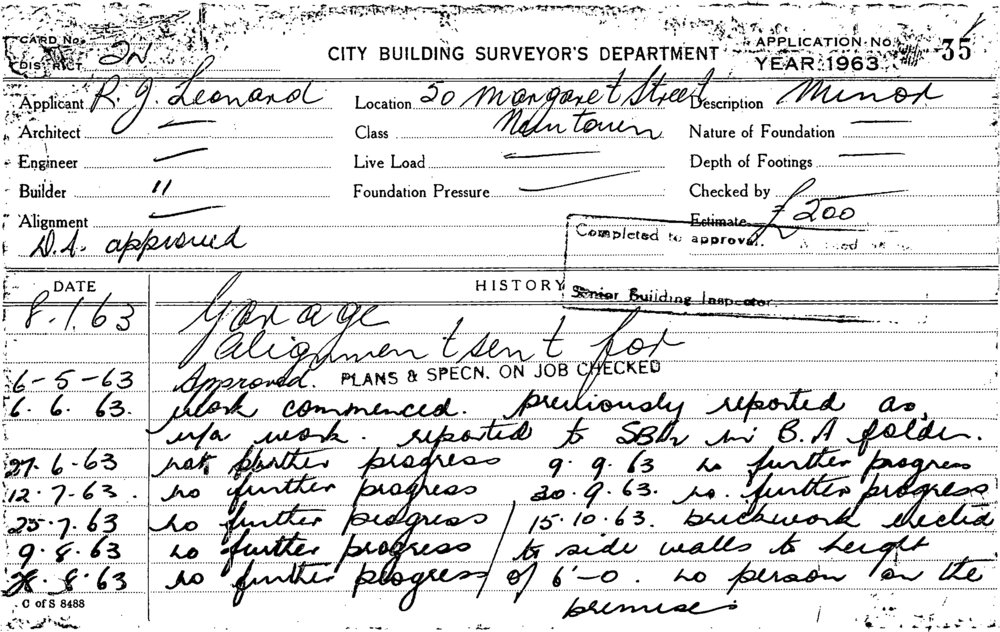 CARD No.
DISTRICT 2N
CITY BUILDING SURVEYOR'S DEPARTMENT
APPLICATION No. 35
YEAR 1963
Applicant R. J. Leonard
Location 50 Margaret Street
Newtown
Description Minor
Architect —
Class
Nature of Foundation —
Engineer —
Live Load —
Depth of Footings —
Builder "
Foundation Pressure —
Checked by
Alignment —
Estimate £200
D.A. approved
Completed to approval.
Senior Building Inspector
DATE HISTORY
8.1.63 Garage
Alignment sent for
6-5-63 Approved. PLANS & SPECN. ON JOB CHECKED
6.6.63. work commenced. previously reported as
u/a work. reported to SBI in B.A folder.
27.6.63 no further progress 9.9.63 no further progress
12.7.63. no further progress 30.9.63. no. further progress
25.7.63 no further progress 15.10.63. brickwork erected
9.8.63 no further progress to side walls to height
28.8.63 no further progress of 6'-0. no person on the
premises
C of S 8488